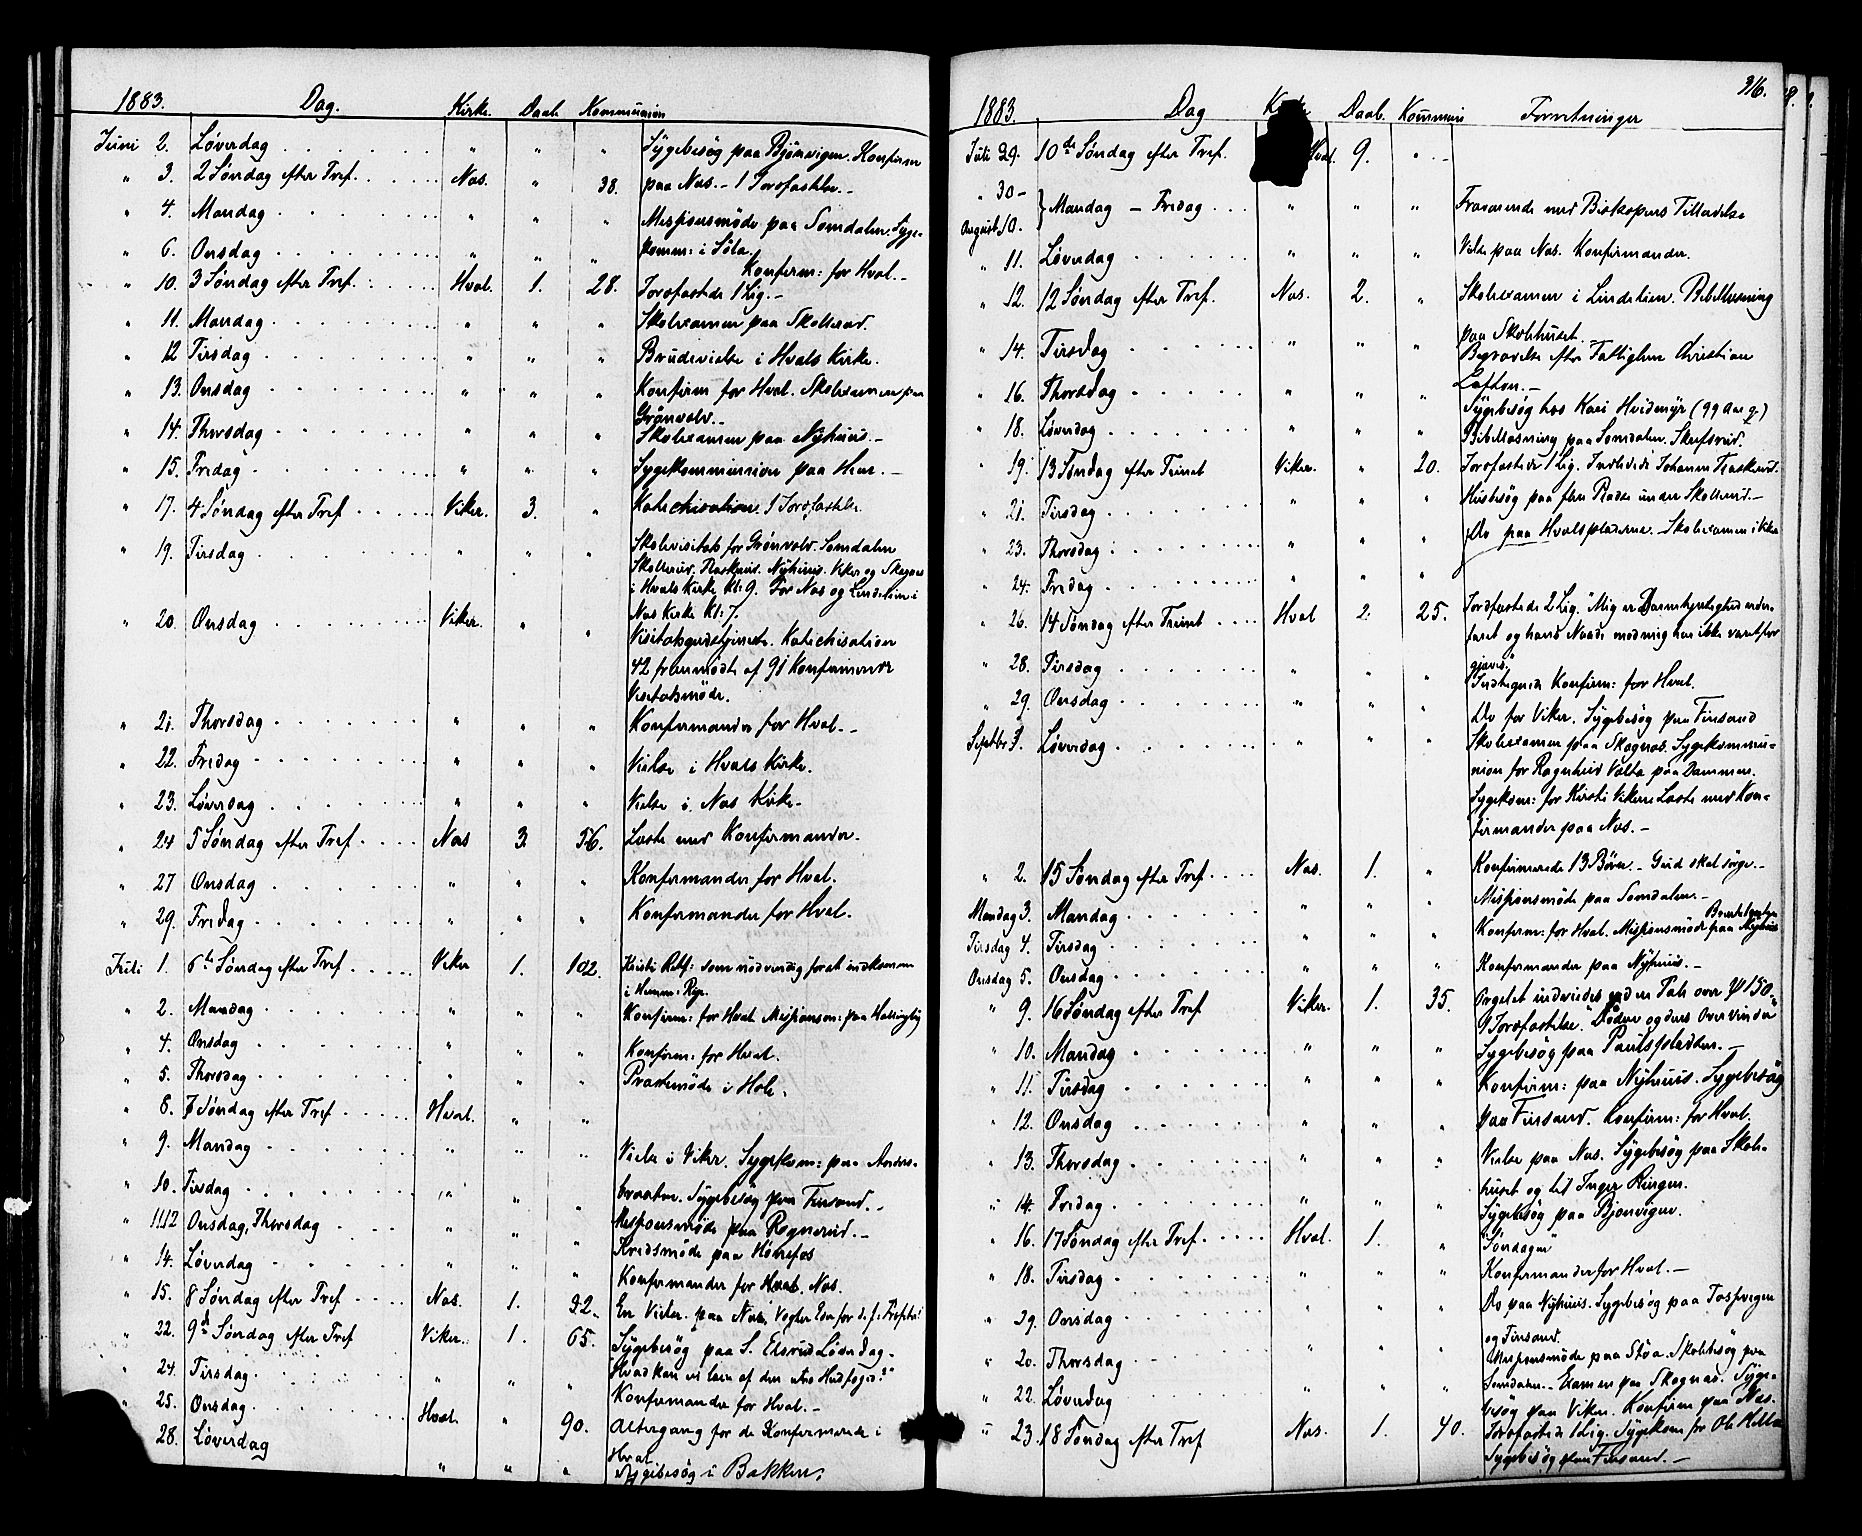 1883. Dag. Kirke. Daab. Kommunion
Juni 2. Løverdag . . . . . " " " Sygebesøg paa Bjørnvigen. Konfirm
" 3. 2 Søndag efter Tref. . . . . Nas. " 38. paa Nas. – 1 Jordfæstelse. –
" 4. Mandag . . . . . " " " Missionsmøde paa Somdalen. Syge-
" 6. Onsdag . . . . . " " " komm: i Støa.
Konfirm: for Hval. –
" 10. 3 Søndag efter Tref. . . . . Hval. 1. 28. Jordfæstede 1 Lig. –
" 11. Mandag . . . . . " " " Skolexamen paa Skollerud.
" 12 Tirsdag . . . . . " " " Brudevielse i Hvals Kirke.
" 13. Onsdag . . . . . " " " Konfirm for Hval. Skolexamen paa
Grønvold. –
" 14. Thorsdag . . . . . " " " Skolexamen paa Nyhuus. –
" 15. Fredag . . . . . " " " Sygekommunion paa Hval. –
" 17. 4 Søndag efter Tref . . . . . Viker. 3. " Katechisation. 1 Jordfæstelse.
" 19. Tirsdag . . . . . " " " Skolevisitats for Grønvold. Somdalen
Skollerud. Flaskerud. Nyhuus. Viker og Skagnæs
i Hvals Kirke Kl: 9. For Nas og Lindelien i
Nas Kirke Kl: 7.
" 20. Onsdag . . . . . Viker. " " Visitatsgudstjeneste. Katechisation
42 fremmødte af 91 Konfirmerede
Visitatsmøde.
" 21. Thorsdag . . . . . " " " Konfirmander for Hval. –
" 22. Fredag . . . . . " " " Vielse i Hvals Kirke.
" 23. Løverdag . . . . . " " " Vielse i Nas Kirke –
" 24 5 Søndag efter Tref . . . . Nas 3 56. Læste med Konfirmander.
" 27 Onsdag . . . . . " " " Konfirmander for Hval.
" 29. Fredag . . . . . " " " Konfirmander for Hval.
Juli 1. 6te Søndag efter Tref . . . . . Viker 1. 102. Kristi Retf: som nødvendig forat indkomme
i Himm: Rige.
" 2. Mandag . . . . . " " " Konfirm: for Hval. Missionsm: paa Hallingby
" 4. Onsdag . . . . . " " " Konfirm: for Hval.
" 5. Thorsdag . . . . . " " " Præstemøde i Hole.
" 8. 7 Søndag efter Tref . . . . . Hval. " "
" 9. Mandag . . . . . " " " Vielse i Viker. Sygekom: paa Anders-
" 10. Tirsdag . . . . . " " " braaten. Sygebesøg paa Finsand. –
" 11.12 Onsdag, Thorsdag . . . " " " Missionsmøde paa Ragnerud. –
Kredsmøde paa Hønefos
" 14. Løverdag . . . . . " " " Konfirmander for Hval. Nas.
" 15. 8 Søndag efter Tref . . . . Nas. 1. 32. En Vielse paa Nas. Vogter Eder for de f. Profeter!
" 22. 9d Søndag efter Tref Viker. 1. 65. Sygebesøg paa S. Elsrud Løverdag.
" 24. Tirsdag . . . . . " " " "Hvad kan vi lære af den utro Husfoged?"
" 25. Onsdag . . . . . Hval. " 90. Konfirmander for Hval. –
Altergang for de Konfirmerede i
Hval.
28. Løverdag " " " Sygebesøg i Bakken.
316.
1883. Dag Daab. Kommuni Forretninger
Juli 29. 10de Søndag efter Tref. Hval. 9. "
" 30 –
August 10. } Mandag – Fredag . . . " " " Fraværende med Biskopens Tilladelse
" 11. Løverdag . . . . . " " " Vielse paa Nas. Konfirmander.
" 12. 12 Søndag efter Tref. Nas. 2. " Skolexamen i Lindelien. Bibellæsning
paa Skolehuset.
" 14. Tirsdag . . . . . " " " Begravelse efter Fattiglem Christian
Loften. –
" 16. Thorsdag . . . . . " " " Sygebesøg hos Kari Hvidmyr (99 Aar g.)
" 18. Løverdag . . . . . " " " Bibellæsning paa Somdalen.
" 19. 13 Søndag efter Trinit Viker. " 20. Jordfæstede 1 Lig. Indledede Johannes Flaskerud.
" 21. Tirsdag . . . . . " " " Husbesøg paa flere Pladse under Skollerud. –
" 23. Thorsdag . . . . . " " " Do paa Hvalspladserne. Skolexamen i Viker
" 24. Fredag . . . . . " " "
" 26. 14 Søndag efter Trinit . . . . Hval 2. 25. Jordfæstede 2 Lig. "Mig er Barmhjertighed veder-
faret og hans Naade mod mig har ikke været for-
gjæves."
" 28. Tirsdag . . . . . " " " Indtegnede Konfirm: for Hval.
" 29. Onsdag . . . . . " " " Do for Viker. Sygebesøg paa Finsand
Septbr 1. Løverdag . . . . . " " " Skolexamen paa Skagnæs. Sygekommu-
nion for Ragnhild Volta paa Dammen.
Sygekom: for Kirsti Vikere. Læste med Kon-
firmander paa Nas. –
" 2. 15 Søndag efter Tref . . . . Nas. 1. " Konfirmerede 13 Børn. – Gud skal sørge. –
Mandag 3. Mandag . . . . . " " " Missionsmøde paa Somdalen. –
Tirsdag 4. Tirsdag . . . . . " " " Konfirm: for Hval. Missionsmøde paa Nyhuus
Onsdag 5. Onsdag . . . . . " " " Konfirmander paa Nyhuus. –
" 9. 16 Søndag efter Tref Viker. 1. 35. Orgelet indviedes ved en Tale over ψ 150.
1 Jordfæstelse. "Døden og dens Overvinder
" 10. Mandag . . . . . " " " Sygebesøg paa Paulspladsen. –
" 11. Tirsdag . . . . . " " " Konfirm: paa Nyhuus. Sygebesøg
" 12. Onsdag . . . . . " " " paa Finsand. Konfirm: for Hval.
" 13. Thorsdag . . . . . " " " Vielse paa Nas. Sygebesøg paa Skole-
huset og til Inger Ringen.
" 14. Fredag . . . . . " " " Sygebesøg paa Bjonvigen.
" 16. 17 Søndag efter Tref . . . . . Hval. 1. " "Søndagen"
" 18. Tirsdag . . . . . " " " Konfirmander for Hval. –
" 19. Onsdag . . . . . " " " Do paa Nyhuus. Sygebesøg paa Fossvegen
og Finsand.
" 20. Thorsdag . . . . . " " " Missionsmøde paa Støa. Skolebesøg paa
Somdalen. – Examen paa Skagnæs. Syge-
" 22. Løverdag . . . . . " " " besøg paa Viker. Konfirm paa Nas.
" 23. 18 Søndag efter Tref Nas. 1. 40. Jordfæstede 1 Lig. Sygekom for Ole Hilla
Sygebesøg paa Finsand. –